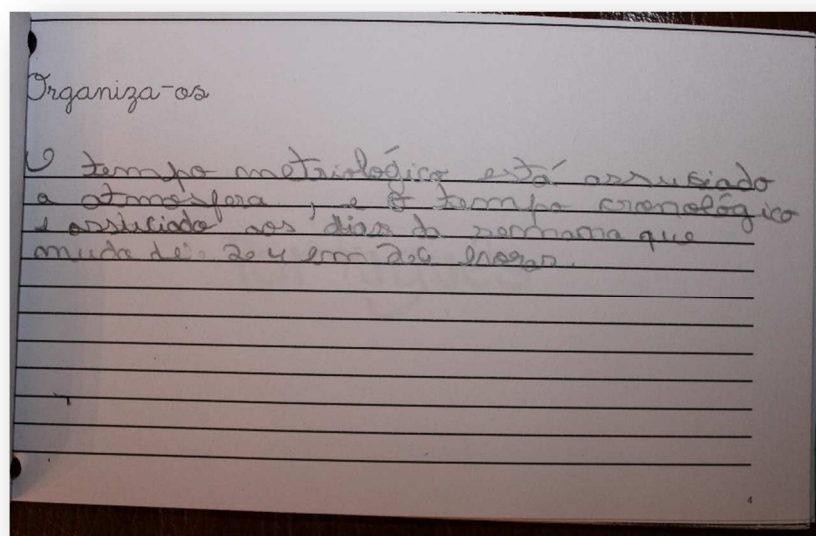 Organiza-os
O tempo metriológico está assusiado
a atmosfera, e o tempo cronológico
e assiciado aos dias da semmana que
muda de 24 em 24 horas.
4